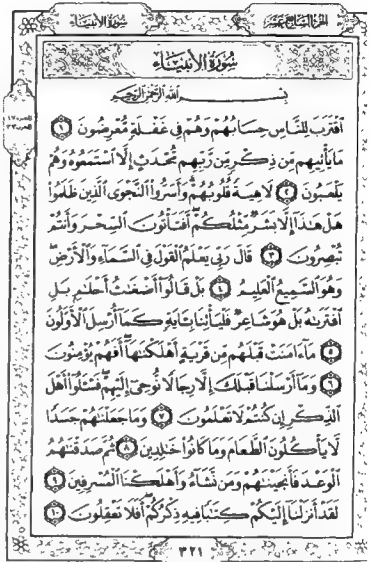 سُورَةُ الأَنبِيَاءِ
الجُزْءُ السَّابِعَ عَشَرَ
سُورَةُ الأَنبِيَاءِ
بِسْمِ اللَّهِ الرَّحْمَٰنِ الرَّحِيمِ
ٱقْتَرَبَ لِلنَّاسِ حِسَابُهُمْ وَهُمْ فِى غَفْلَةٍ مُّعْرِضُونَ ١
مَا يَأْتِيهِم مِّن ذِكْرٍ مِّن رَّبِّهِم مُّحْدَثٍ إِلَّا ٱسْتَمَعُوهُ وَهُمْ
يَلْعَبُونَ ٢ لَاهِيَةً قُلُوبُهُمْ وَأَسَرُّوا۟ ٱلنَّجْوَى ٱلَّذِينَ ظَلَمُوا۟
هَلْ هَٰذَآ إِلَّا بَشَرٌ مِّثْلُكُمْ أَفَتَأْتُونَ ٱلسِّحْرَ وَأَنتُمْ
تُبْصِرُونَ ٣ قَالَ رَبِّى يَعْلَمُ ٱلْقَوْلَ فِى ٱلسَّمَآءِ وَٱلْأَرْضِ
وَهُوَ ٱلسَّمِيعُ ٱلْعَلِيمُ ٤ بَلْ قَالُوٓا۟ أَضْغَٰثُ أَحْلَٰمٍۭ بَلِ
ٱفْتَرَىٰهُ بَلْ هُوَ شَاعِرٌ فَلْيَأْتِنَا بِـَٔايَةٍ كَمَآ أُرْسِلَ ٱلْأَوَّلُونَ
٥ مَآ ءَامَنَتْ قَبْلَهُم مِّن قَرْيَةٍ أَهْلَكْنَٰهَآ أَفَهُمْ يُؤْمِنُونَ
٦ وَمَآ أَرْسَلْنَا قَبْلَكَ إِلَّا رِجَالًا نُّوحِىٓ إِلَيْهِمْ فَسْـَٔلُوٓا۟ أَهْلَ
ٱلذِّكْرِ إِن كُنتُمْ لَا تَعْلَمُونَ ٧ وَمَا جَعَلْنَٰهُمْ جَسَدًا
لَّا يَأْكُلُونَ ٱلطَّعَامَ وَمَا كَانُوا۟ خَٰلِدِينَ ٨ ثُمَّ صَدَقْنَٰهُمُ
ٱلْوَعْدَ فَأَنجَيْنَٰهُمْ وَمَن نَّشَآءُ وَأَهْلَكْنَا ٱلْمُسْرِفِينَ ٩
لَقَدْ أَنزَلْنَآ إِلَيْكُمْ كِتَٰبًا فِيهِ ذِكْرُكُمْ أَفَلَا تَعْقِلُونَ ١٠
٣٢١